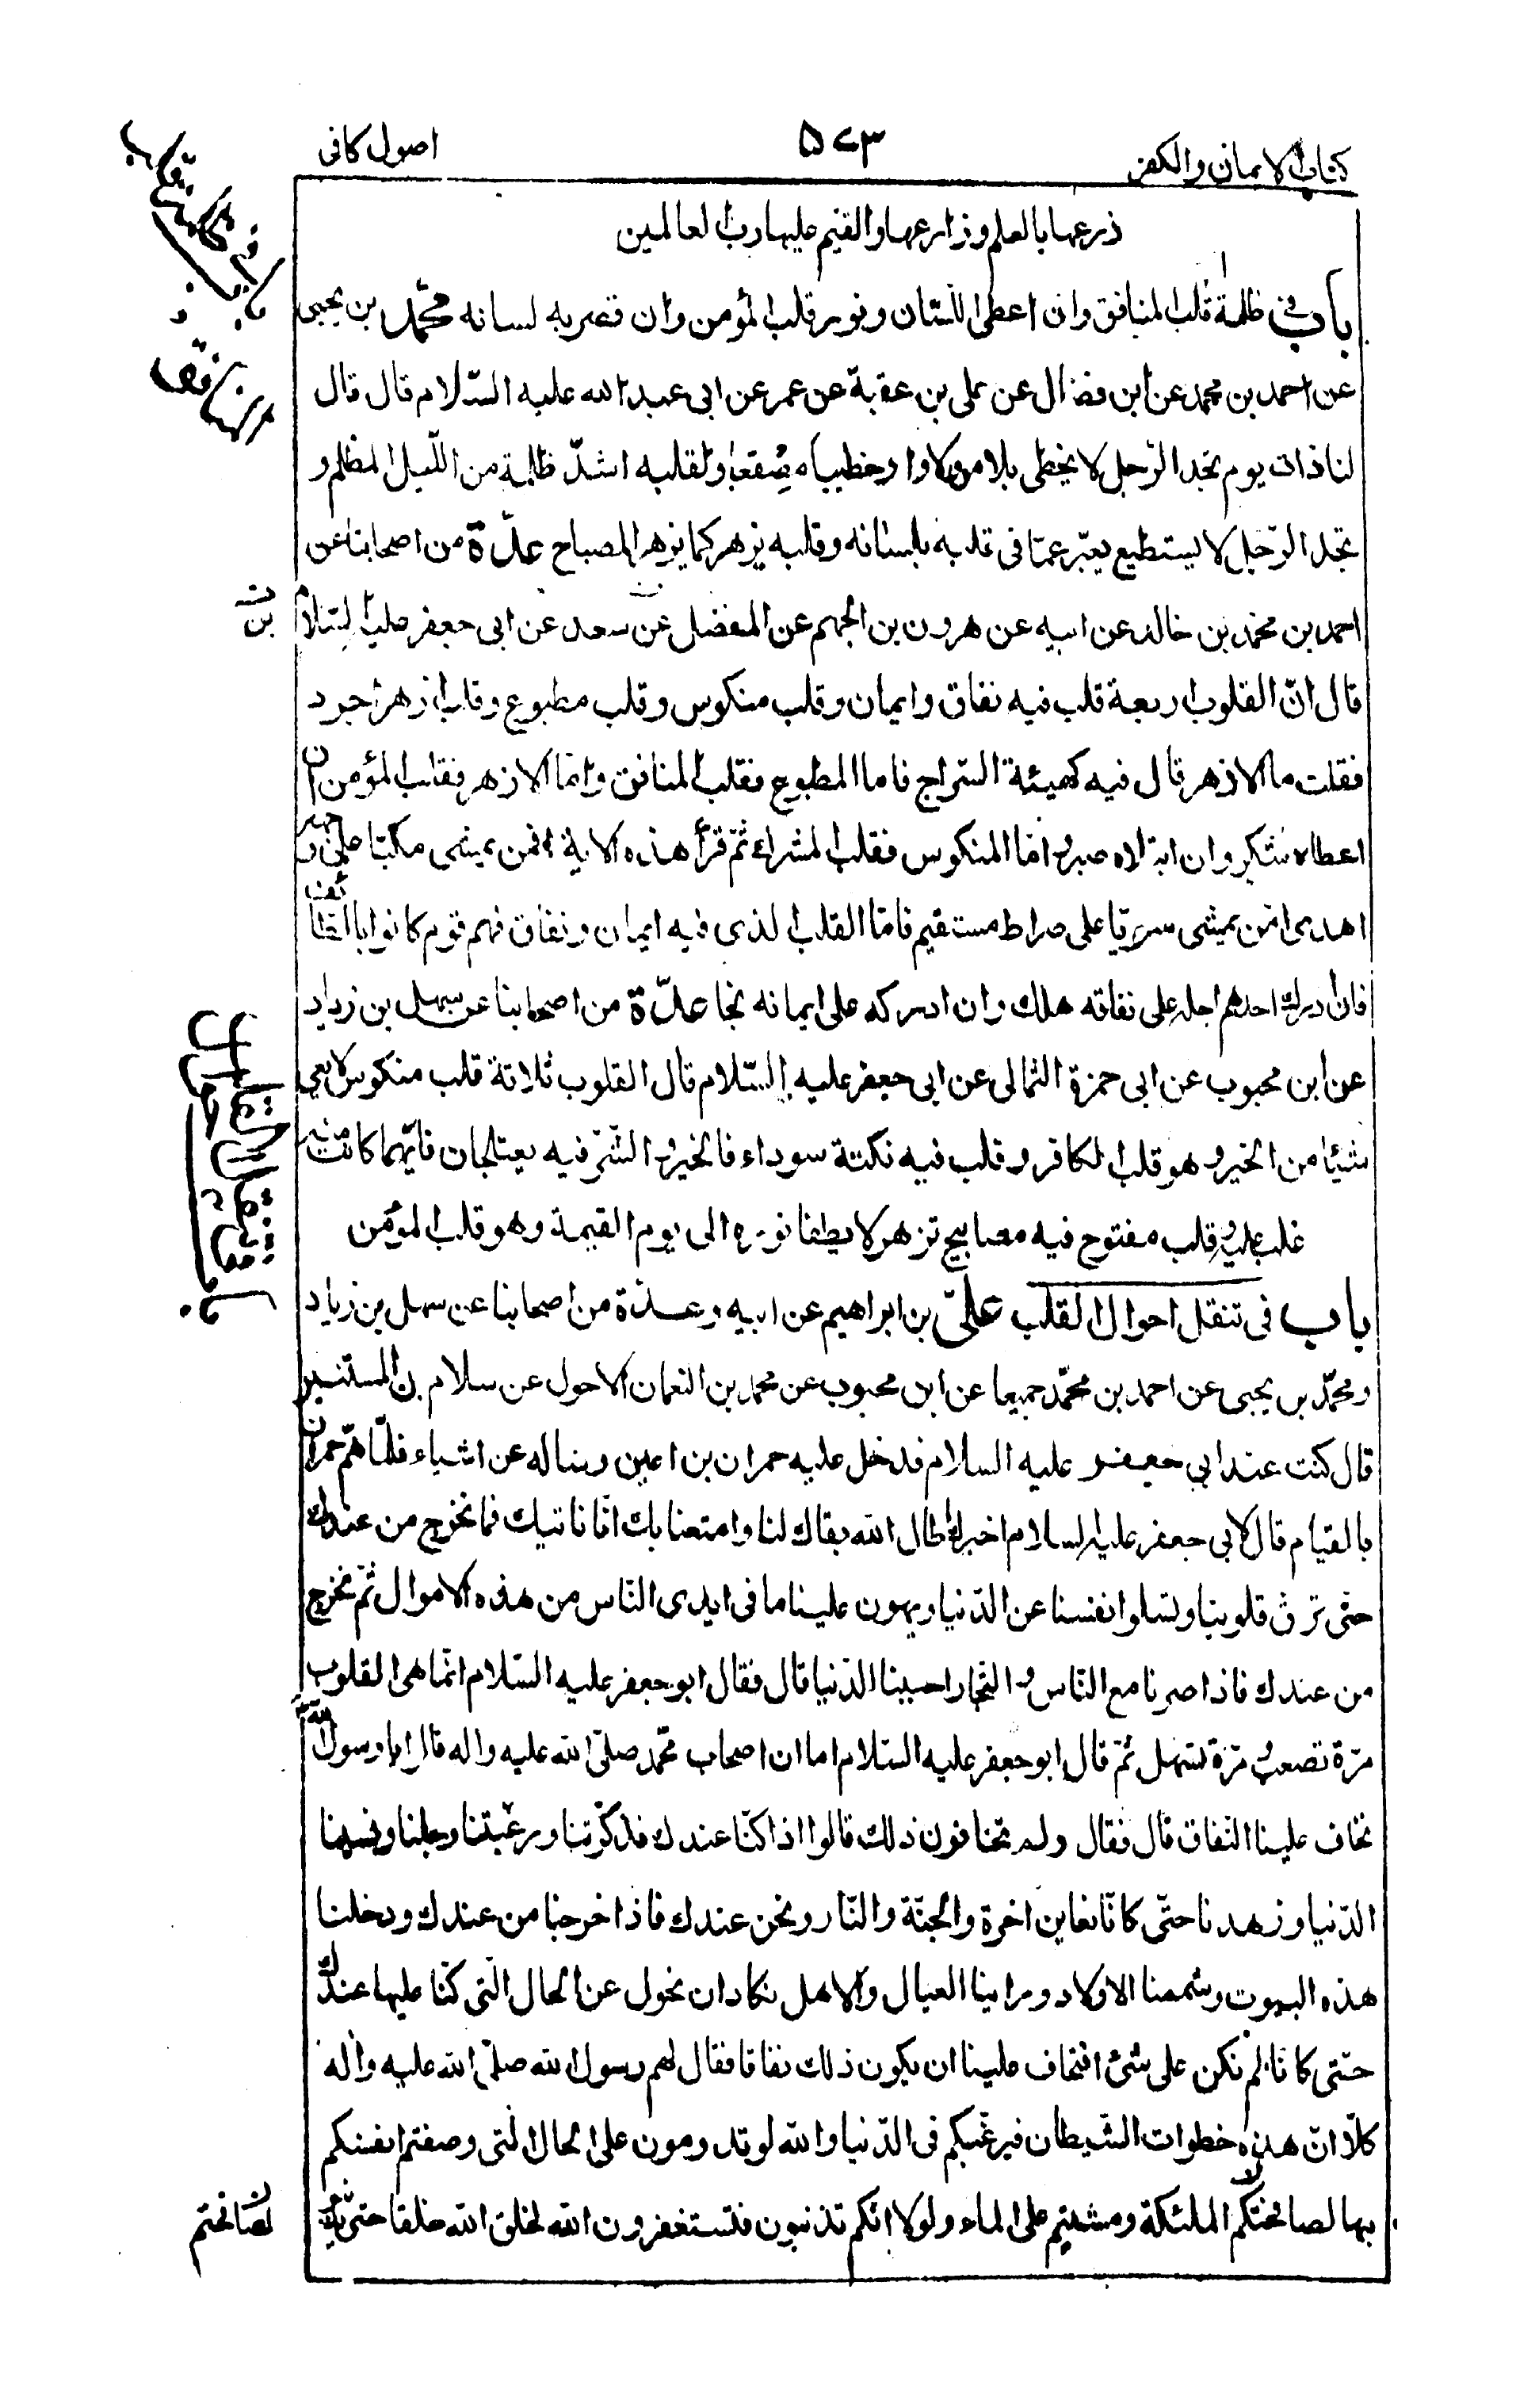 كتاب الايمان والكفر
۵۷۳
اصول كافى
زرعها بالعلم وزارعها والقيم عليها رب العالمين
باب فى ظلمة قلب المنافق وان اعطى اللسان ونور قلب المؤمن وان قصر به لسانه محمّد بن يحيى
عن احمد بن محمد عن ابن فضال عن على بن عقبة عن عمر عن ابى عبد الله عليه السّلام قال قال
لنا ذات يوم تجد الرّجل لا يخطى بلام ولا واو خطيبا مصقعا ولقلبه اشدّ ظلمة من اللّيل المظلم و
تجد الرّجل لا يستطيع يعبّر عمّا فى قلبه بلسانه وقلبه يزهر كما يزهر المصباح عدّة من اصحابنا عن
احمد بن محمّد بن خالد عن ابيه عن هرون بن الجهم عن المفضل عن سعد عن ابى جعفر عليه السّلام
قال انّ القلوب اربعة قلب فيه نفاق وايمان وقلب منكوس وقلب مطبوع وقلب ازهر اجرد
فقلت ما الازهر قال فيه كهيئة السّراج فاما المطبوع فقلب المنافق وامّا الازهر فقلب المؤمن ان
اعطاه شكر وان ابتلاه صبر وامّا المنكوس فقلب المشرك ثمّ قرأ هذه الاية افمن يمشى مكبّا على وجهه
اهدى امّن يمشى سويّا على صراط مستقيم فامّا القلب الذى فيه ايمان ونفاق فهم قوم كانوا بالطّائف
فان ادرك احدهم اجله على نفاقه هلك وان ادركه على ايمانه نجا عدّة من اصحابنا عن سهل بن زياد
عن ابن محبوب عن ابى حمزة الثمالى عن ابى جعفر عليه السّلام قال القلوب ثلاثة قلب منكوس لا يعى
شيئا من الخير وهو قلب الكافر وقلب فيه نكتة سوداء فالخير والشّرّ فيه يعتلجان فايّهما كانت منه
غلب عليه وقلب مفتوح فيه مصابيح تزهر لا يطفا نوره الى يوم القيمة وهو قلب المؤمن
باب فى تنقل احوال القلب علىّ بن ابراهيم عن ابيه وعدّة من اصحابنا عن سهل بن زياد
ومحمّد بن يحيى عن احمد بن محمّد جميعا عن ابن محبوب عن محمد بن النعمان الاحول عن سلام بن المستنير
قال كنت عند ابى جعفر عليه السلام فدخل عليه حمران بن اعين وساله عن اشياء فلمّا همّ حمران
بالقيام قال لابى جعفر عليه السلام اخبرك اطال الله بقاك لنا وامتعنا بك انّا ناتيك فما نخرج من عندك
حتّى ترقّ قلوبنا وتسلوا نفسنا عن الدّنيا ويهون علينا ما فى ايدى النّاس من هذه الاموال ثمّ نخرج
من عندك فاذا صرنا مع النّاس والتّجار احببنا الدّنيا قال فقال ابو جعفر عليه السّلام انّما هى القلوب
مرّة تصعب ومرّة تسهل ثمّ قال ابو جعفر عليه السّلام اما ان اصحاب محمّد صلّى الله عليه واله قالوا يا رسول الله
نخاف علينا النّفاق قال فقال ولم تخافون ذلك قالوا اذا كنّا عندك فذكّرتنا ورغّبتنا وجلنا ونسينا
الدّنيا وزهدنا حتّى كانّا نعاين اخرة والجنّة والنّار ونحن عندك فاذا خرجنا من عندك ودخلنا
هذه البيوت وشممنا الاولاد وراينا العيال والاهل نكاد ان نحول عن الحال الّتى كنّا عليها عندك
حتّى كانّا لم نكن على شئ افتخاف علينا ان يكون ذلك نفاقا فقال لهم رسول الله صلّى الله عليه واله
كلّا انّ هذه خطوات الشّيطان فيرغّبكم فى الدّنيا والله لو تدومون على الحال الّتى وصفتم انفسكم
بها لصافحتكم الملئكة ومشيتم على الماء ولولا انّكم تذنبون فتستغفرون الله لخلق الله خلقا حتّى